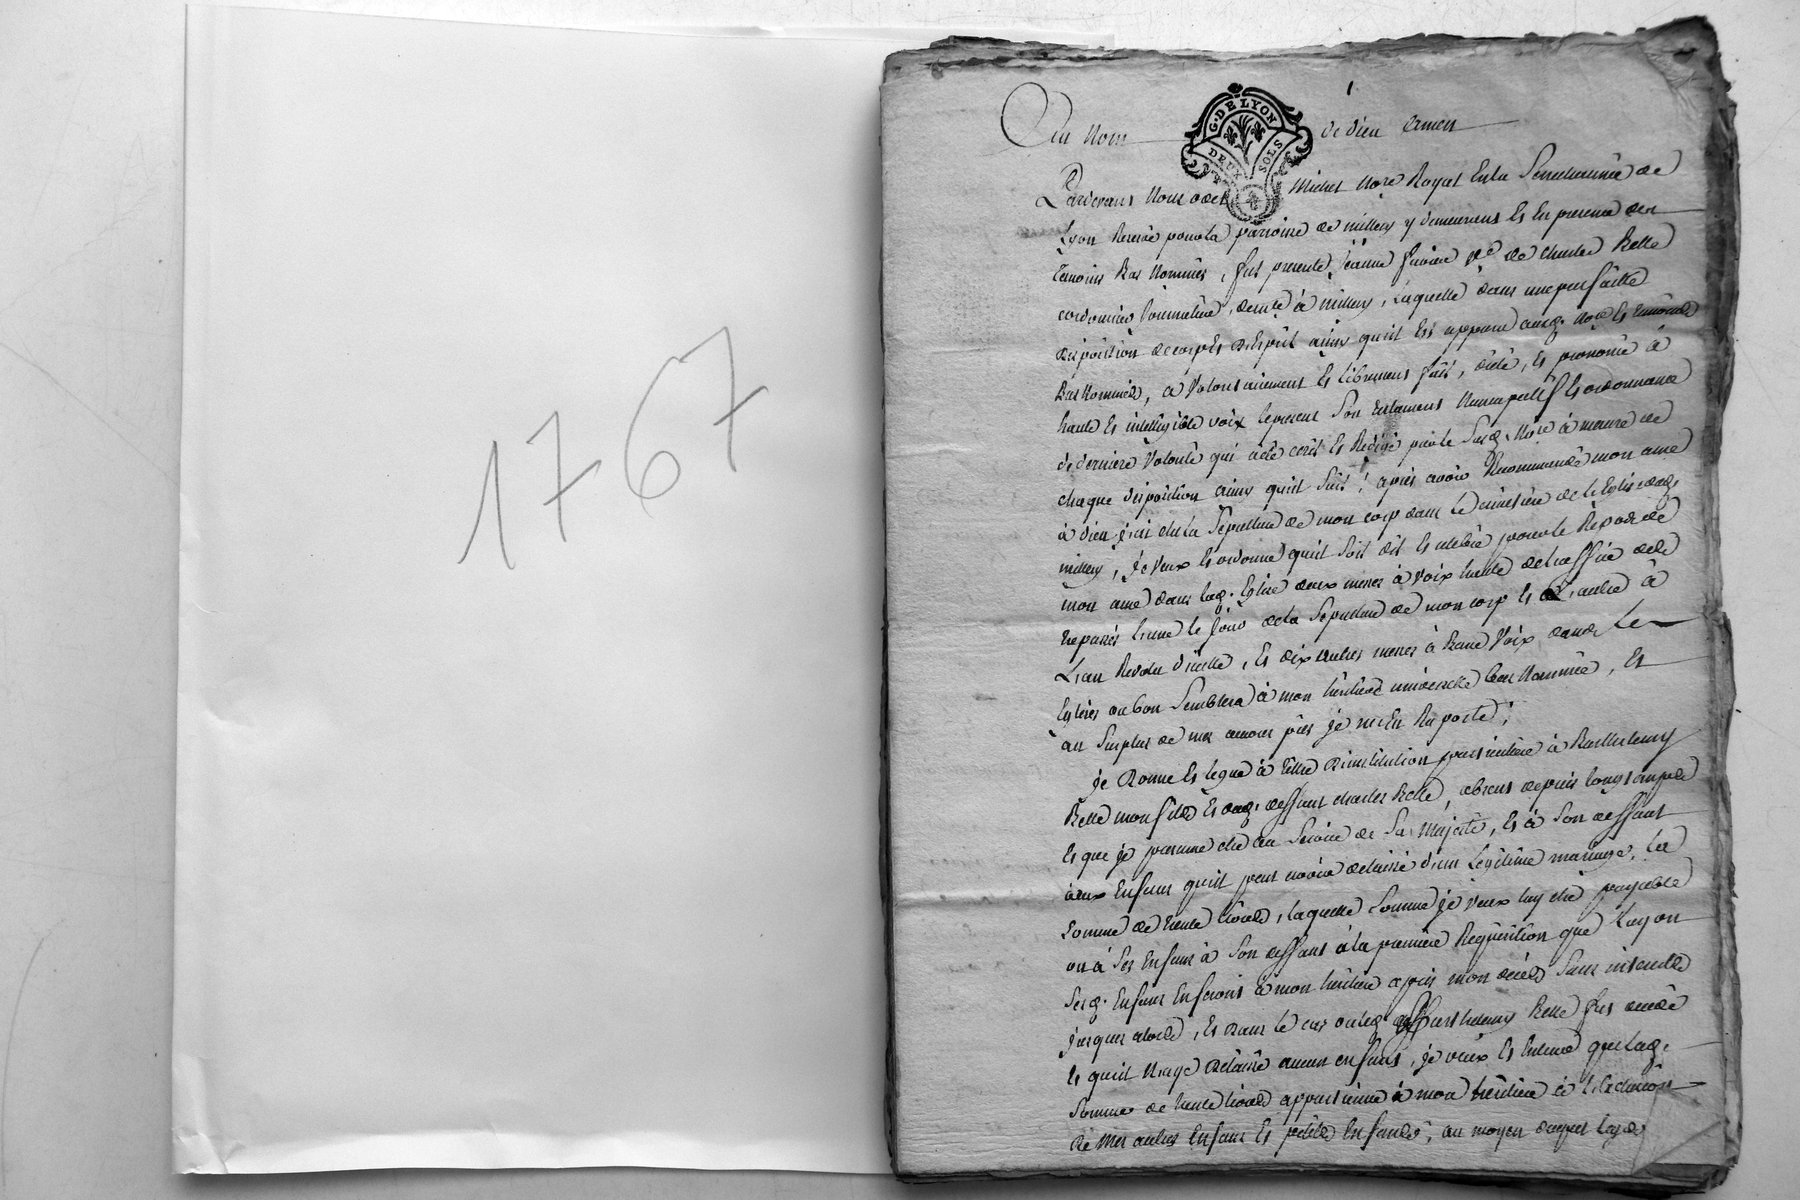 1767
G. DE LYON
DEUX SOLS
Au Nom de dieu Amen
Pardevant Nous Michel Nore Royal En la Senechaussée de
Lyon Reservé pour la parroisse de millery y demeurant Et En presence des
temoins Bas Nommés, fut presente Jeanne ve de Charles Relle
cordonnier demte à millery, Laquelle dans une parfaitte
disposition de corps Et d'Esprit ainsy quil Est apparu auxd. Nore Et temoins
Bas Nommés, a Volontairement Et librement fait, dicté, Et prononcé à
haute Et intelligible voix le present Son testament Nuncupatif Et ordonnance
de derniere Volonté qui a été ecrit Et Redigé par le Susd. Nore à mesure de
chaque disposition ainsy quil Suit; après avoir Recommandé mon ame
à dieu j'ai elu la Sepulture de mon corp dans le cimetière de l'Eglise dud.
millery, je veux Et ordonne quil Soit dit Et celebré pour le Repos de
mon ame dans lad. Eglise deux messes à voix haute de l'office des
trepassés l'une le jour de la Sepulture de mon corp Et L'autre à
L'an Revolu d'icelle, Et dix autres messes à Basse Voix dans Les
Eglises ou bon Semblera à mon héritier universelle bas Nommée, Et
au Surplus de mes je m'en Raporte;
je Donne Et legue à titre d'institution particulière à Barthelemy
Relle mon fils Et dud. deffunt charles Relle, absent depuis longtemps
Et que je presume etre au Service de Sa Majesté, Et à Son deffaut
aux Enfans quil peut avoir delaissé d'un Legitime mariage, La
Somme de trente livres, laquelle Somme je veux luy etre payable
ou à Ses Enfans à Son deffaut à la première Requisition que luy ou
Sesd. Enfans En feront à mon héritière après mon décès Sans interêts
jusques alors, Et dans le cas ou led. Barthelemy Relle fut decedé
Et quil N'aye delaissé aucun enfans, je veux Et entend que lad.
Somme de trente livres appartienne à mon héritière à l'exclusion
de Mes autres Enfans Et petits Enfans, au moyen duquel legs